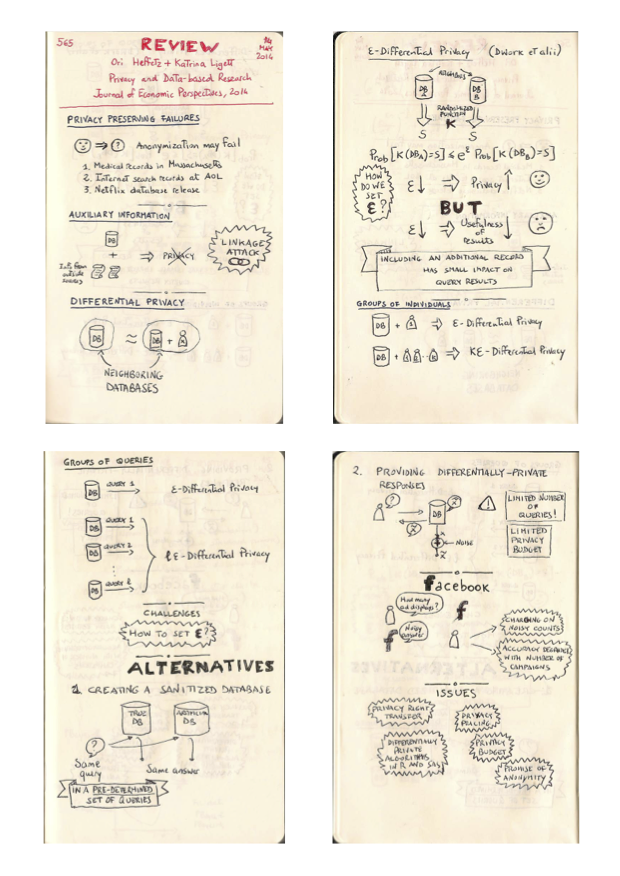 565
REVIEW
14 MAY 2014
Ori Heffetz + Katrina Ligett
Privacy and Data-based Research
Journal of Economic Perspectives, 2014
PRIVACY PRESERVING FAILURES
Anonymization may Fail
1. Medical records in Massachusetts
2. Internet search records at AOL
3. Netflix database release
AUXILIARY INFORMATION
DB
+
Info from
outside
sources
⇒ PRIVACY
LINKAGE
ATTACK
DIFFERENTIAL PRIVACY
DB ≈ DB +
NEIGHBORING
DATABASES
ε-Differential Privacy (Dwork et alii)
NEIGHBORS
DB A
DB B
RANDOMIZED
FUNCTION
K
S S
Prob[K(DBA)=S] ≤ e^ε Prob[K(DBB)=S]
HOW
DO WE
SET
ε?
ε↓ ⇒ Privacy ↑
BUT
ε↓ ⇒ Usefulness
of
results ↓
INCLUDING AN ADDITIONAL RECORD
HAS SMALL IMPACT ON
QUERY RESULTS
GROUPS OF INDIVIDUALS
DB + 1 ⇒ ε-Differential Privacy
DB + ... ⇒ Kε-Differential Privacy
GROUPS OF QUERIES
DB QUERY 1 → ε-Differential Privacy
DB QUERY 1 →
DB QUERY 2 →
ℓε-Differential Privacy
DB QUERY ℓ →
CHALLENGES
HOW TO SET ε?
ALTERNATIVES
1. CREATING A SANITIZED DATABASE
TRUE
DB
ARTIFICIAL
DB
?
Same
query
Same answer
IN A PRE-DETERMINED
SET OF QUERIES
2. PROVIDING DIFFERENTIALLY-PRIVATE
RESPONSES
?
DB
NOISE
LIMITED NUMBER
OF
QUERIES!
LIMITED
PRIVACY
BUDGET
facebook
How many
ad displays?
f
Noisy
f
CHARGING ON
NOISY COUNTS
ACCURACY DECREASES
WITH NUMBER OF
CAMPAIGNS
ISSUES
PRIVACY RIGHT
TRANSFER
PRIVACY
PRICING
DIFFERENTIALLY
PRIVATE
ALGORITHMS
IN R AND SAS
PRIVACY
BUDGET
PROMISE OF
ANONYMITY